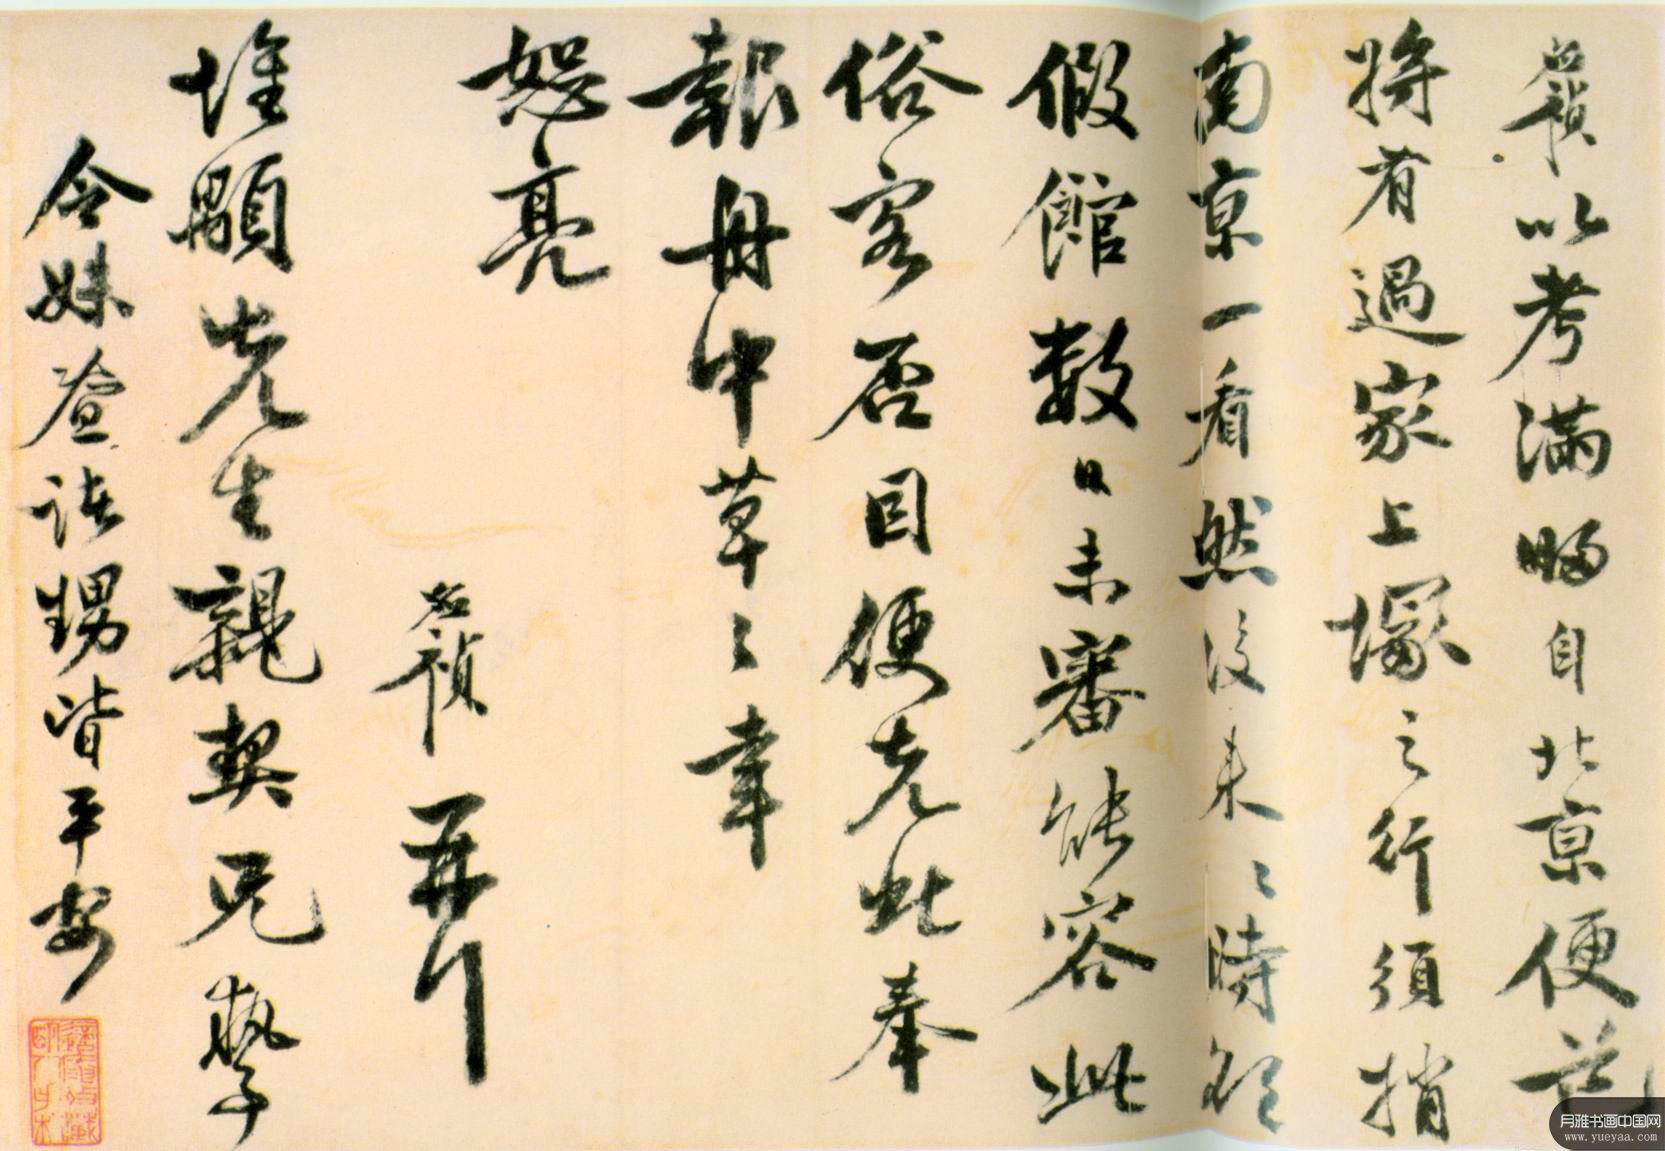 應禎以考滿歸自北京便道
將有過家上塚之行須捎
南京一看然後來〻時欲
假館數日未審能容此
俗客否因便先此奉
報舟中草〻幸
恕亮
應禎再拜
堆顒先生親契兄執事
令妹并諸甥皆平安
月雅书画中国网
www.yueyaa.com